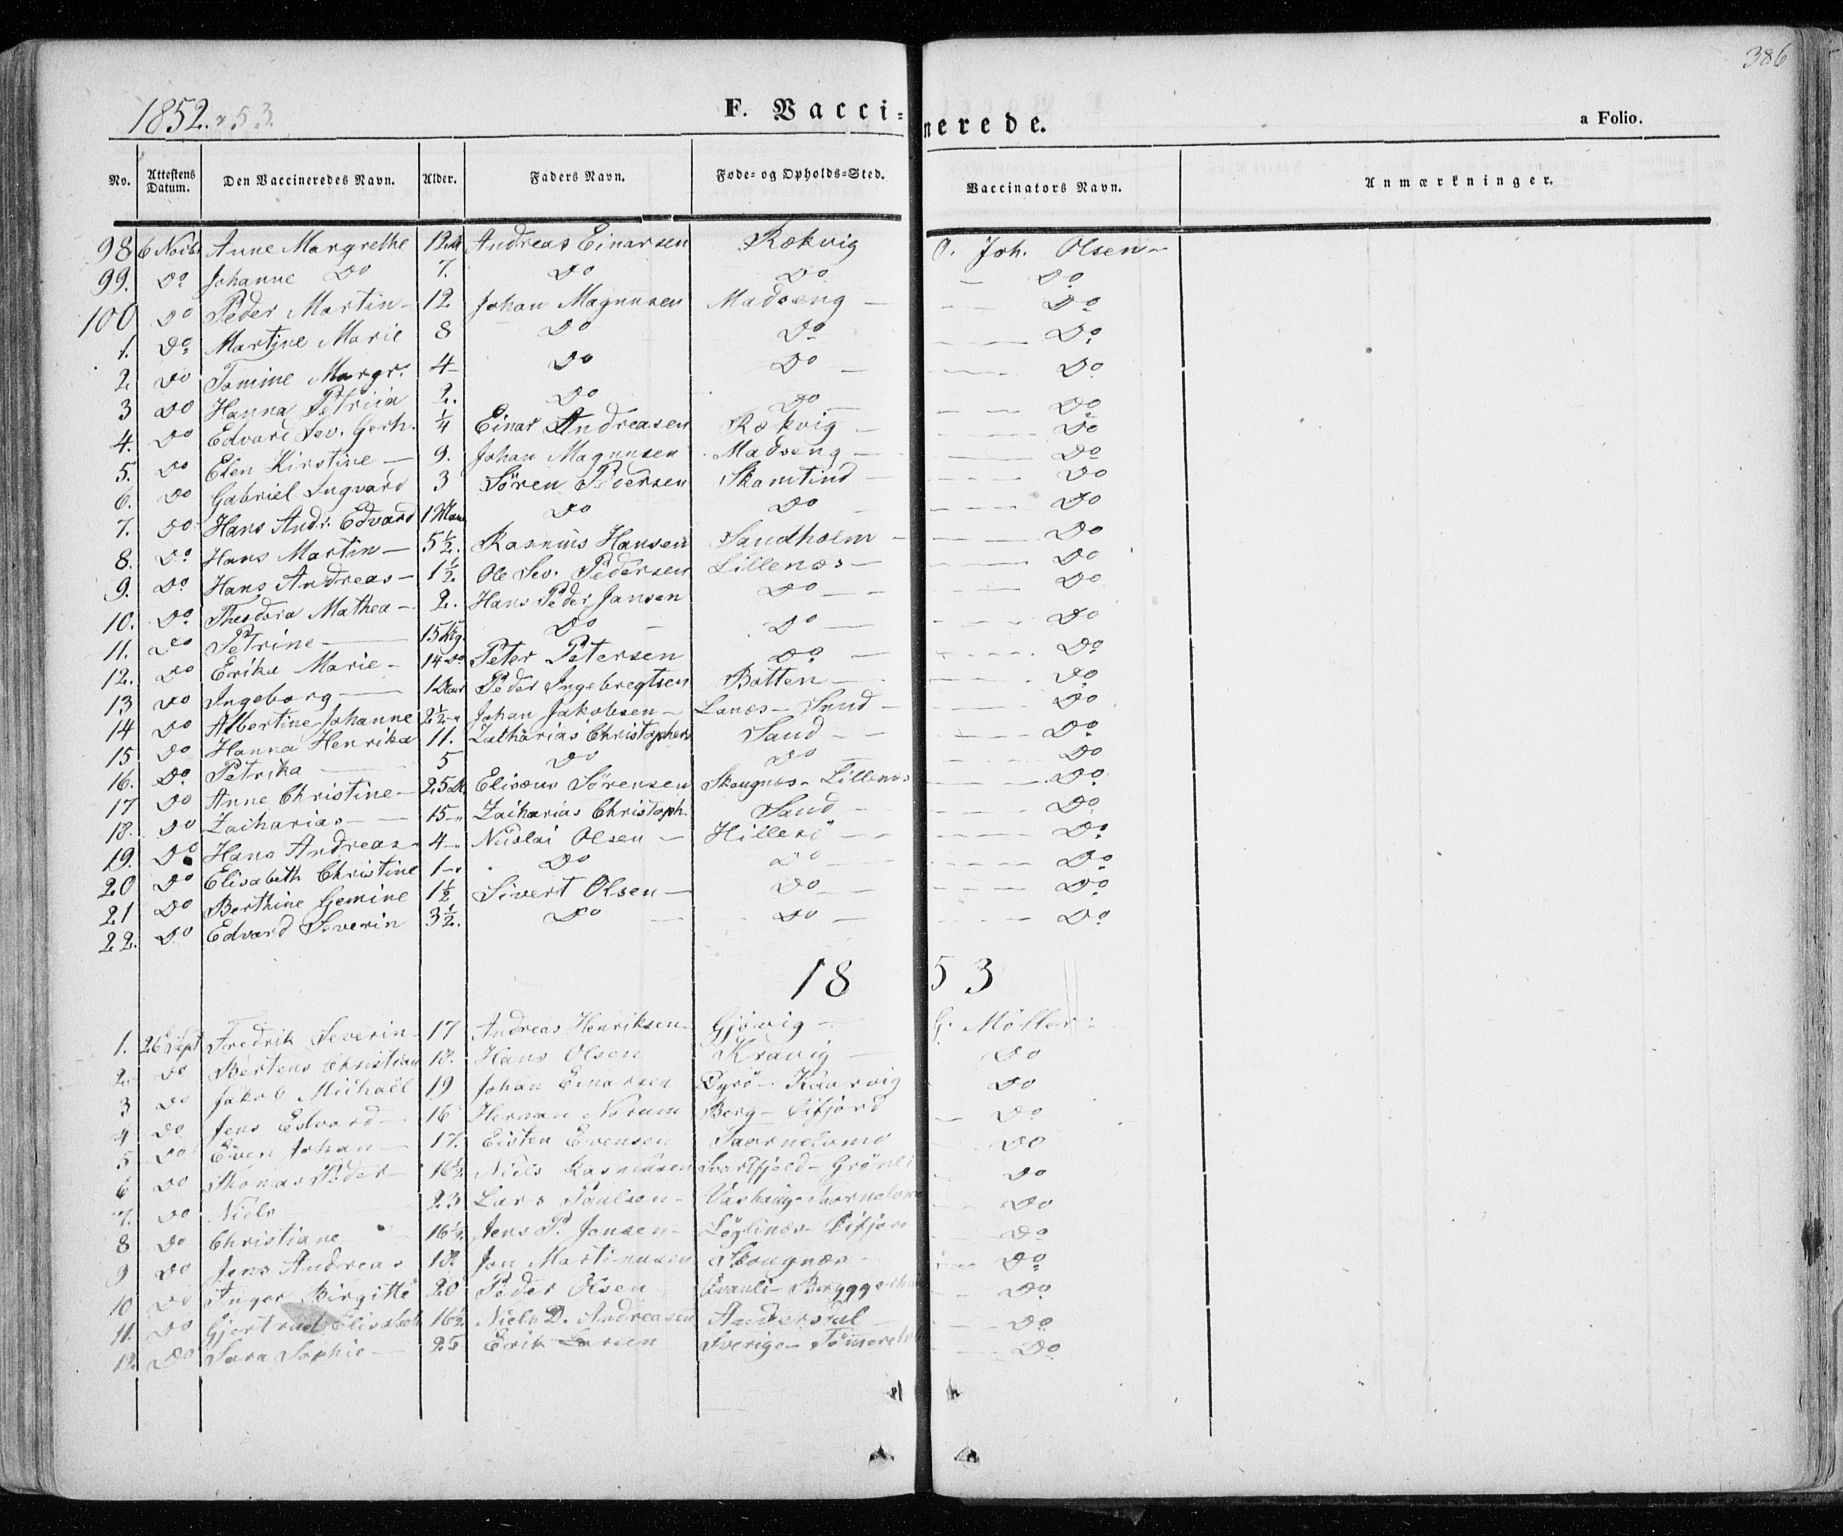 386
1852. 53.
F. Vacci=nerede.
a Folio.
No. Attestens Datum. Den Vaccineredes Navn. Alder. Faders Navn. Føde= og Opholds=Sted. Vaccinators Navn. Anmærkninger.
98 6 Novbr Anne Margrethe 12 Andreas Einarsen Rækvig O. Joh. Olsen
99. Do Johanne Do 7. Do Do Do
100 Do Peder Martin 12 Johan Magnusen Madseng Do
1. Do Martine Marie 8 Do Do Do
2 Do Tomine Margr. 4 Do Do Do
3 Do Hanna Petrina 2. Do Do Do
4. Do Edvard Sev. Gerh. 1/4 Einar Andreasen Rækvig Do
5. Do Elen Kirstine 9. Johan Magnusen Madseng Do
6. Do Gabriel Ingvard 3 Sören Pedersen Skamtind Do
7. Do Hans Andr. Edvard 1 Do Do Do
8. Do Hans Martin 5 1/2. Rasmus Hansen Sandholm Do
9. Do Hans Andreas 1 1/2. Ole Sev. Pedersen Lillenæs Do
10. Do Theodora Mathea 2. Hans Peder Jansen Do Do
11. Do Petrine 15 Do Do Do
12. Do Erika Marie 14 Do Peter Petersen Do Do
13 Do Ingeborg 1 Peder Ingebregtsen Botten Do
14 Do Albertine Johanne 2 1/2 Johan Jakobsen Lanæs - Sand Do
15 Do Hanna Henrika 11. Zacharias Christophers Sand Do
16. Do Petrika 5 Do Do Do
17 Do Anne Christine 25 Elisæus Sörensen Skognæs - Lillenæs Do
18. Do Zacharias 15 Zacharias Christoph. Sand Do
19. Do Hans Andreas 4 Nicolai Olsen Hillesö Do
20 Do Elisabeth Christine 1 Do Do Do
21 Do Berthine Gemine 1 1/2 Sivert Olsen Do Do
22. Do Edvard Severin 3 1/2. Do Do Do
1853
1. 26 Sept Fredrik Severin 17 Andreas Henriksen Gjövig G. Möller
2 Do Bertens Christian 18. Hans Olsen Kravig Do
3 Do Jakob Michael 19 Johan Einarsen Dyrö - Kaarvig Do
4 Do Jens Edvard 16 Herman Norum Berg - Do
5 Do Even Johan 17. Eisten Evensen Do
6 Do Thomas Peder 16 1/2 Niels Rasmusen Svartfjeld - Grönli Do
7. Do Niels 23 Lars Paulsen Do
8 Do Christiane 16 1/2 Jens P. Jensen Do
9 Do Jens Andreas 18. Jon Martinusen Skognæs Do
10 Do Inger Birgitte 20 Peder Olsen Do
11. Do Gjertrud Elisabeth 16 1/2 Niels D. Andreasen Andersdal Do
12 Do Sara Sophie 25 Erik Larsen Sverige Do